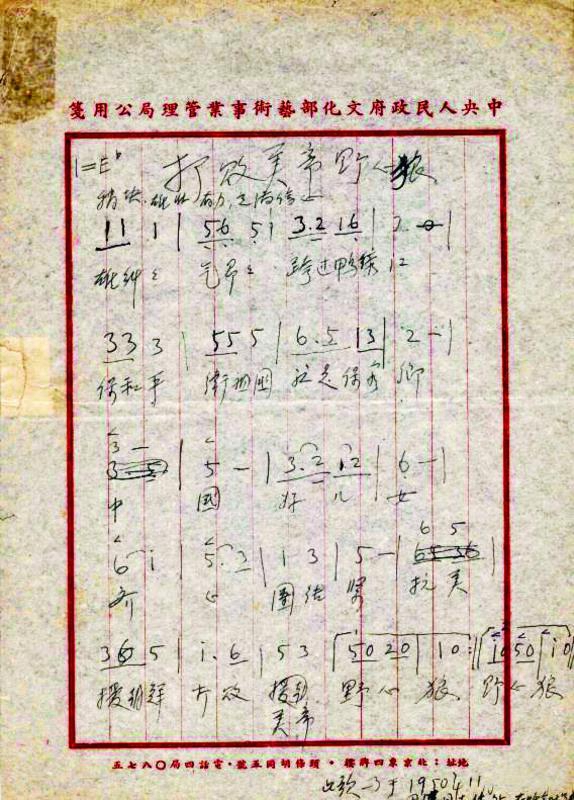 中央人民政府文化部藝術事業管理局公用箋
1=E♭ 打敗美帝野心狼
稍快 雄壮 有力,充满信心
11 1 | 56 5i | 3.2 16 | 2 - |
雄糾糾 气昂昂 跨过鸭绿江
33 3 | 55 5 | 6.5 13 | 2 - |
保和平 衛祖国 就是保家鄉
3 - | 5 - | 3.2 1.2 | 6 - |
中 國 好 儿 女
6 i | 5.3 | 1 3 | 5 - | 6 5 |
齐 心 團结 緊 抗美
36 5 | i.6 | 53 | 50 20 | 10 :| i0 50 | i0
援朝鲜 打敗 美帝 野心 狼 野心 狼
地址：北京東四牌樓・頭條胡同五號・電話四局〇八七五
此歌 于1950年11